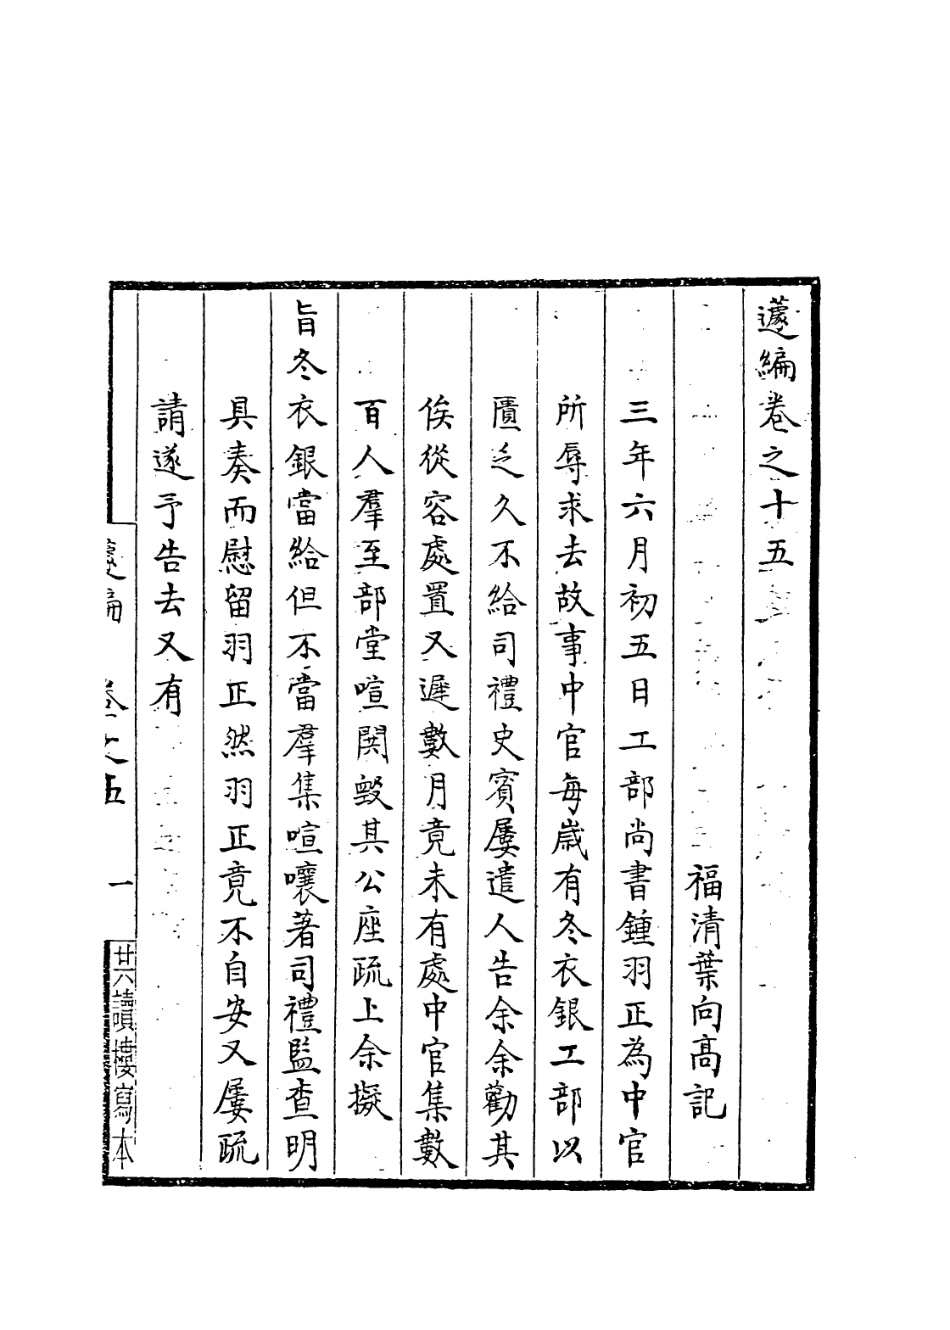 蘧編卷之十五
福清葉向高記
三年六月初五日工部尚書鍾羽正為中官
所辱求去故事中官每歳有冬衣銀工部以
匱乏久不給司禮史賓屢遣人告余余勸其
俟從容處置又遲數月竟未有處中官集數
百人羣至部堂喧鬨毀其公座疏上余擬
旨冬衣銀當給但不當羣集喧嚷著司禮監查明
具奏而慰留羽正然羽正竟不自安又屢疏
請遂予告去又有
蘧編 卷之五 一 廿六讀樓寫本